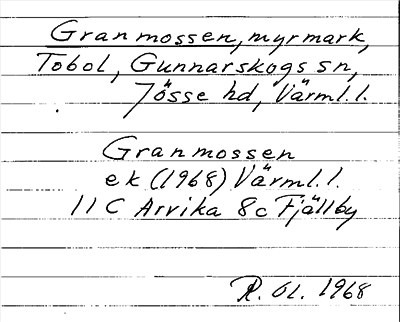 Granmossen, myrmark,
Tobol, Gunnarskogs sn,
Jösse hd, Värml.l.
Granmossen
ek (1968) Värml.l.
11 C Arvika 8c Fjällby
R. Ol. 1968